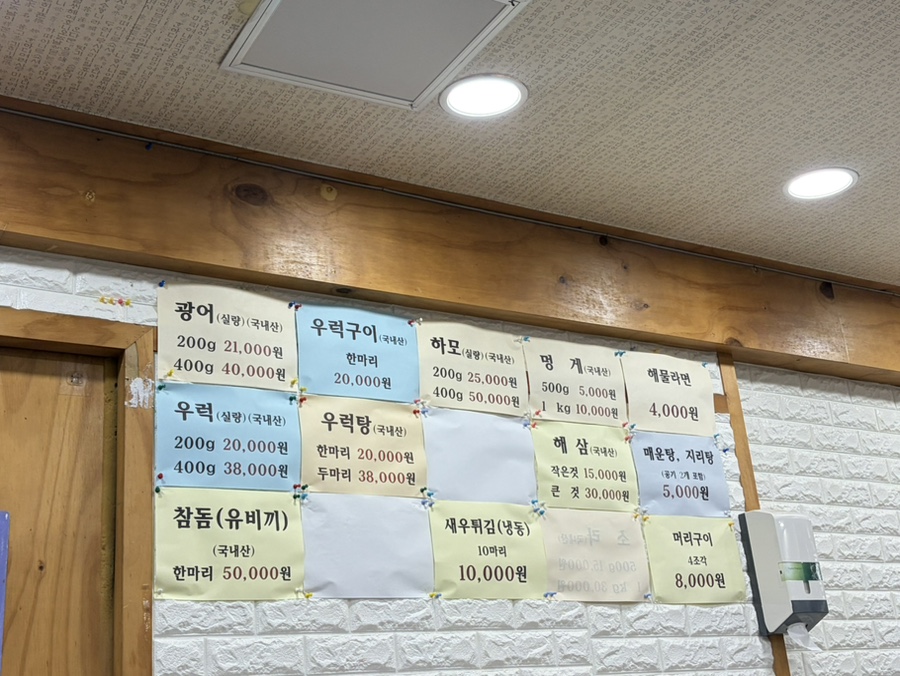 광어(실량)(국내산)
200g 21,000원
400g 40,000원
우럭구이(국내산)
한마리
20,000원
하모(실량)(국내산)
200g 25,000원
400g 50,000원
멍 게(국내산)
500g 5,000원
1 kg 10,000원
해물라면
4,000원
우럭(실량)(국내산)
200g 20,000원
400g 38,000원
우럭탕(국내산)
한마리 20,000원
두마리 38,000원
해 삼(국내산)
작은것 15,000원
큰 것 30,000원
매운탕, 지리탕
(공기 2개 포함)
5,000원
참돔(유비끼)
(국내산)
한마리 50,000원
새우튀김(냉동)
10마리
10,000원
머리구이
4조각
8,000원